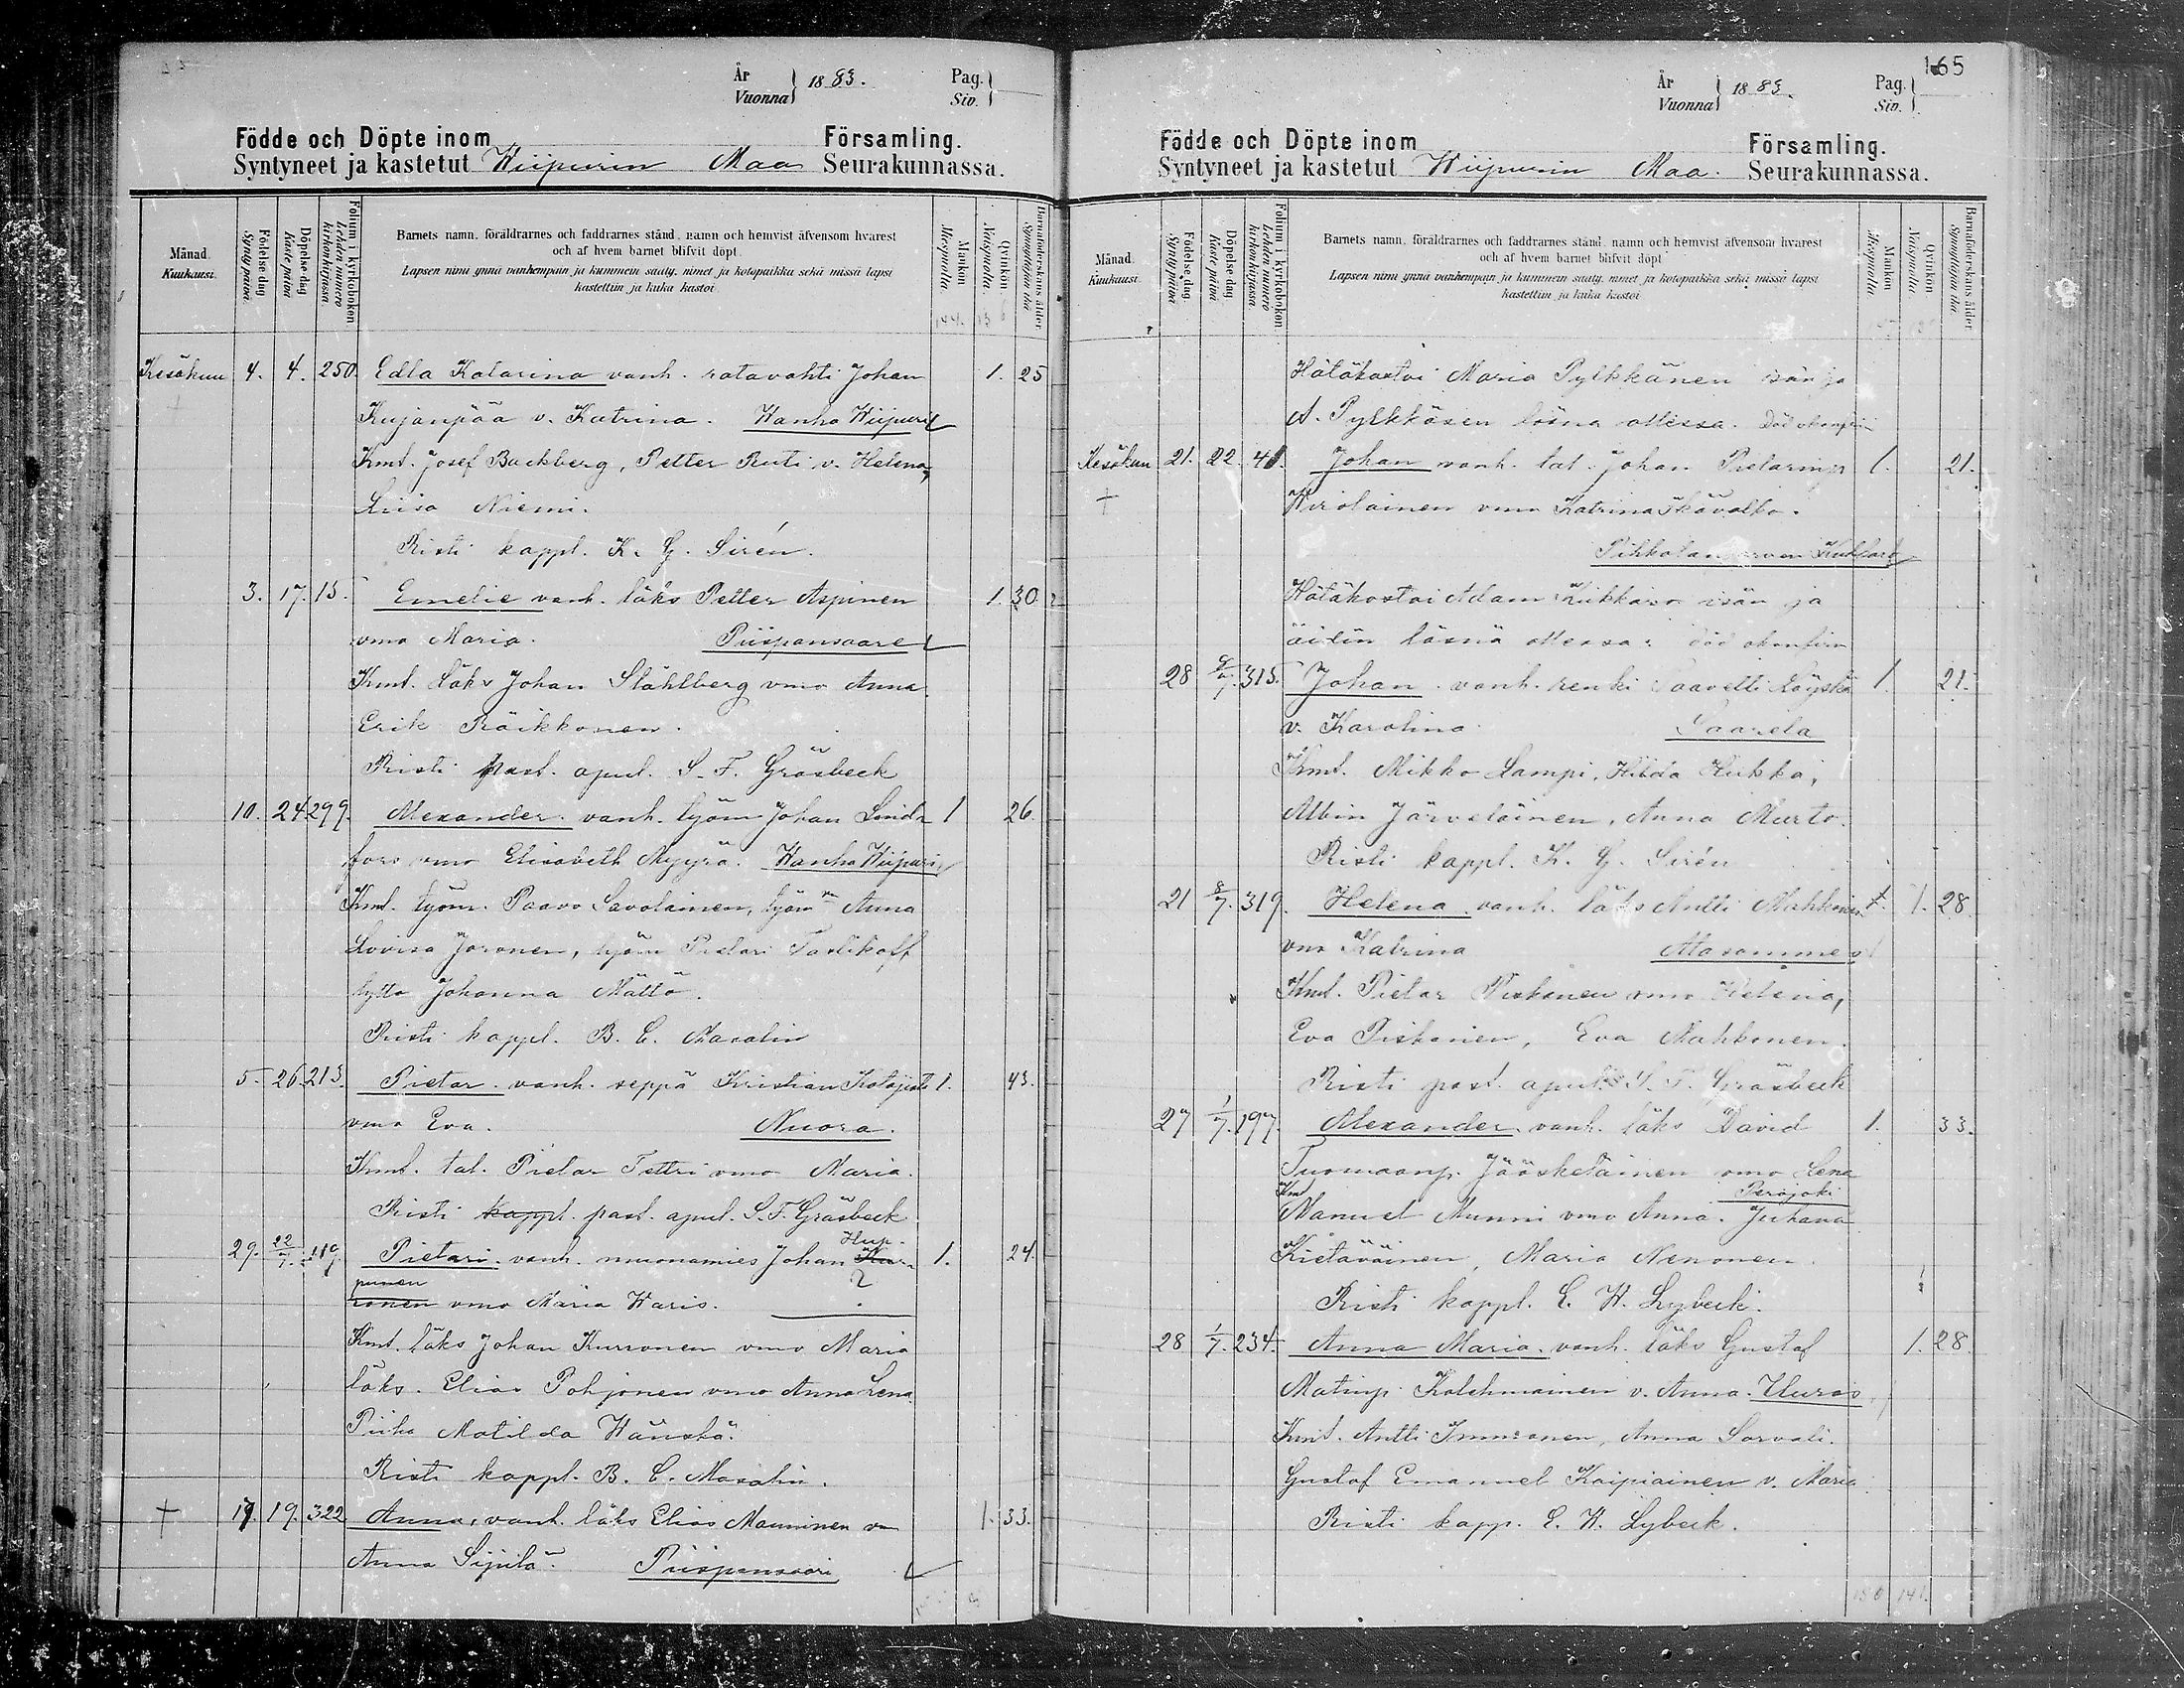 År
Vuonna } 1883.
Pag.
Siv. }
Födde och Döpte inom Församling.
Syntyneet ja kastetut Wiipurin Maa Seurakunnassa.
Månad. Kuukausi.
Födelse dag Synty päivä.
Döpelse dag Kaste päivä
Folium i kyrkoboken Lehden numero kirkonkirjassa
Barnets namn, föräldrarnes och faddrarnes stånd, namn och hemvist äfvensom hvarest
och af hvem barnet blifvit döpt.
Lapsen nimi ynnä vanhempain ja kummein sääty, nimet ja kotopaikka sekä missä lapsi
kastettiin ja kuka kastoi
Mankön Miespuolia
Qvinkön Naispuolia.
Barnaföderskans ålder Synnyttäjän ikä
Kesäkuu 4. 4. 250. Edla Katarina vanh. ratavahti Johan 1. 25
Kujanpää v. Katrina. Wanha Wiipuri
Kmt. Josef Backberg, Petter Ruti v. Helena,
Liisa Niemi.
Risti kappl. K. G. Sirén.
3. 17. 15. Emelie vanh. läks Petter Aspinen 1. 30.
vmo Maria. Piispansaare
Kmt. läks Johan Ståhlberg vmo Anna.
Erik Räikkonen.
Risti past. apul. S. F. Gräsbeck
10. 24 299. Alexander. vanh. työm Johan Lind- 1 26.
fors vmo Elisabeth Myyrä. Wanha Wiipuri
Kmt. työm. Paavo Savolainen, työm Anna
Lovisa Joronen, työm Pietari
tyttö Johanna Mättö.
Risti kappl. B. C. Masalin
5. 26 213. Pietar. vanh. seppä Kristian 1. 43.
vmo Eva. Nuora.
Kmt. tal. Pietar Tettri vmo Maria.
Risti kappl. past. apul. S. F. Gräsbeck
Hup-
29. 22/7. 119. Pietari. vanh. muonamies Johan 1. 24.
punen ?
ronen vmo Maria Waris.
Kmt. läks Johan Kurronen vmo Maria
läks. Elias Pohjonen vmo Anna Lena
Piika Matilda Hänskä.
Risti kappl. B. C. Masalin.
† 19. 322 Anna, vanh. läks Elias Manninen v 1. 33.
Anna Sipilä. Piispansaari
165
År
Vuonna } 1883.
Pag.
Siv. }
Födde och Döpte inom Församling.
Syntyneet ja kastetut Wiipurin Maa. Seurakunnassa.
Månad. Kuukausi.
Födelse dag Synty päivä
Döpelse dag Kaste päivä
Folium i kyrkoboken Lehden numero kirkonkirjassa
Barnets namn, föräldrarnes och faddrarnes stånd, namn och hemvist äfvensom hvarest
och af hvem barnet blifvit döpt
Lapsen nimi ynnä vanhempain ja kummein sääty, nimet ja kotopaikka sekä missä lapsi
kastettiin ja kuka kastoi
Mankön Miespuolia
Qvinkön Naispuolia
Barnaföderskans ålder Synnyttäjän ikä
Hätäkastoi Maria Pylkkänen isän ja
A. Pylkkäsen läsna ollessa. Död okonfir
Kesäkuu 21. 22. Johan vanh. tal. Johan Pietarinp. 1. 21.
† Wirolainen vmo Katrina Skävalho.
Pihkalan
Hätäkastoi Adam Kukkaro isän ja
äidin läsnä ollessa. Död okonfirm
28 9/7. 315. Johan. vanh. renki Taavetti Löyskä 1. 21.
v. Karolina. Saarela
Kmt. Mikko Lampi, Hilda Hukka,
Albin Järveläinen, Anna Murto.
Risti kappl. K. G. Sirén
21 8/7. 319. Helena. vanh. läks Antti Mahkonen 1. 28.
vmo Katrina Alasomme
Kmt. Pietar Piskonen vmo Helena,
Eva Piskonen, Eva Mahkonen.
Risti past. apul. S. F. Gräsbeck
27 1/7. 197. Alexander. vanh. läks David 1. 33.
Tuomaanp. Jääskeläinen vmo Lena
Kmt. Perojoki
Manuel Munni vmo Anna. Juhana
Kietäväinen, Maria Nenonen.
Risti kappl. E. W. Lybeck.
28 1/7. 234. Anna Maria. vanh. läks Gustaf 1. 28.
Matinp. Kolehmainen v. Anna. Uuras,
Kmt. Antti Immonen, Anna Sorvali.
Gustaf Emanuel Kaipiainen v. Maria.
Risti kapp. E. W. Lybeck.
150 141.